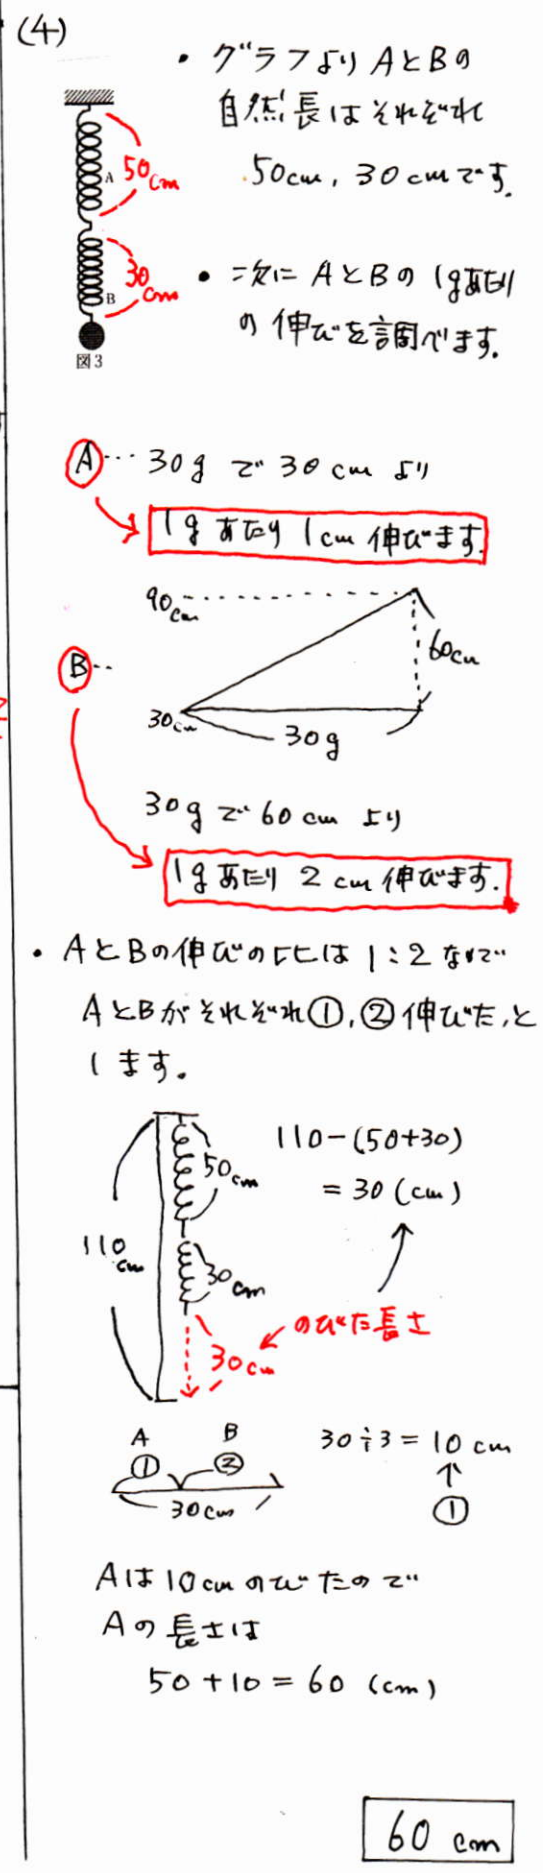 (4)
・グラフよりAとBの
自然長はそれぞれ
50cm, 30cmです。
50cm
A
30cm
B
図3
・次にAとBの1gあたり
の伸びを調べます。
A… 30gで30cmより
1gあたり1cm伸びます。
90cm
60cm
B…
30cm
30g
30gで60cmより
1gあたり2cm伸びます。
・AとBの伸びの比は1:2なので
AとBがそれぞれ①,②伸びたと
します。
110-(50+30)
50cm
=30(cm)
110cm
30cm
のびた長さ
30cm
A B
① ②
30÷3=10cm
30cm
①
Aは10cmのびたので
Aの長さは
50+10=60 (cm)
60 cm